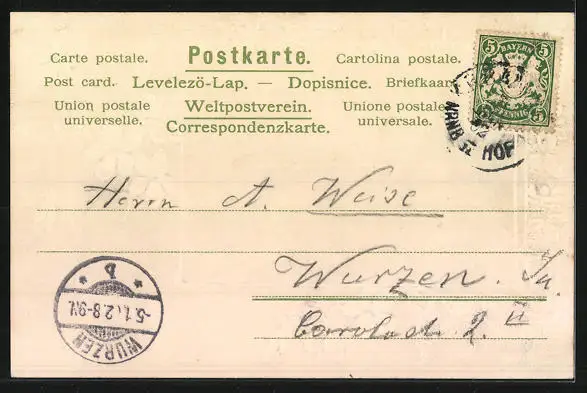 Carte postale. Postkarte. Cartolina postale.
Post card. Levelezö-Lap. — Dopisnice. Briefkaart.
Union postale universelle. Weltpostverein. Unione postale universale.
Correspondenzkarte.
5 BAYERN 5
5 PFENNIG 5
HOF
Herrn A. Weise
Wurzen. Sa.
Carolastr. 2 II
b
5.1. 2.8-9V.
WURZEN